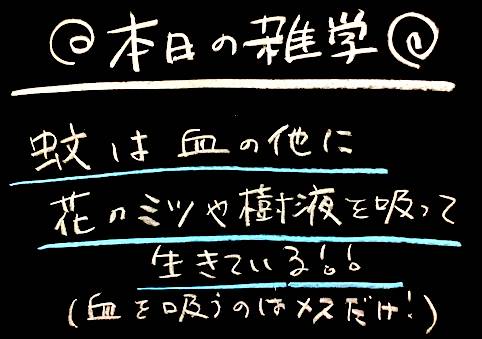 本日の雑学
蚊は血の他に
花のミツや樹液を吸って
生きている!!
(血を吸うのはメスだけ!)